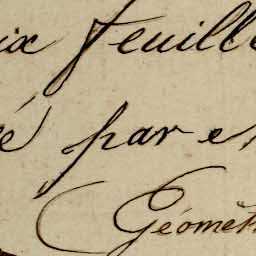 ix feuille
é par e
Géomét